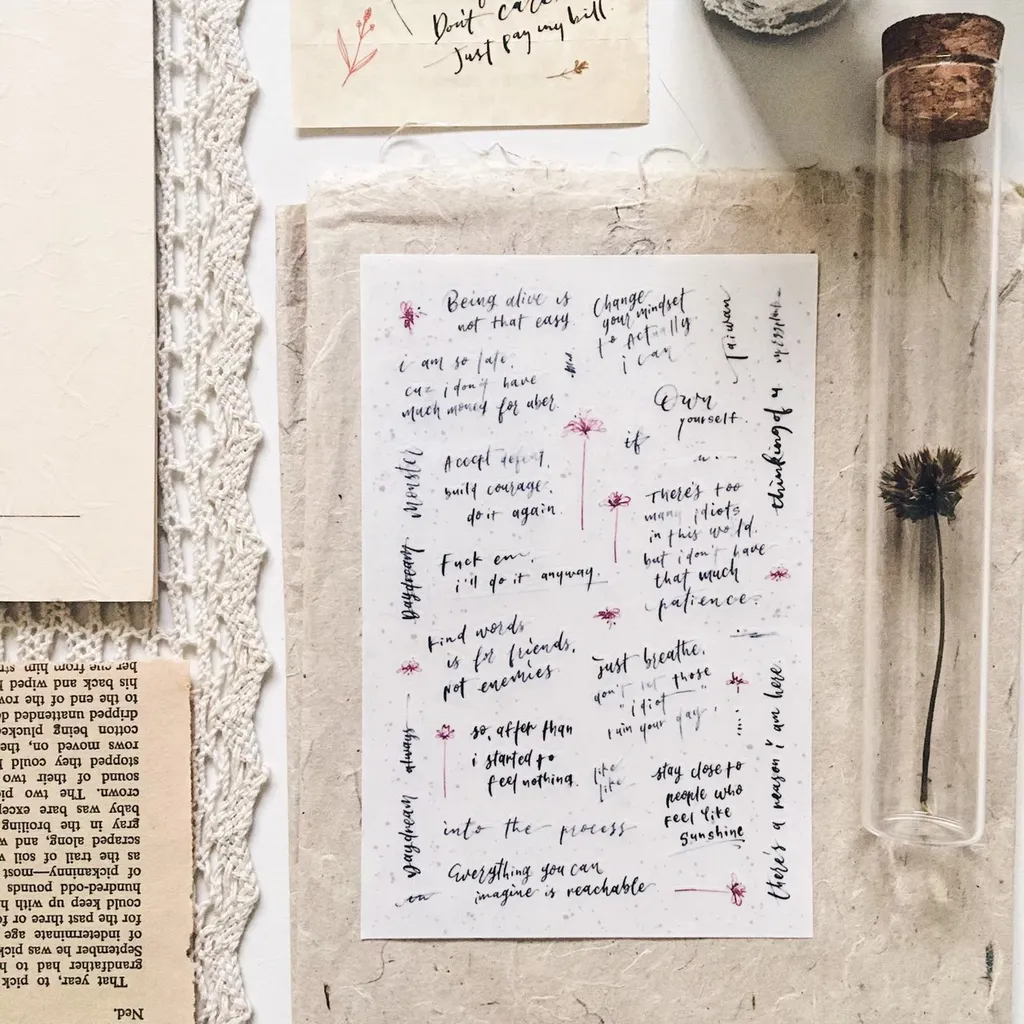 Don't care
Just pay my bill.
Being alive is
not that easy
Change
your mindset
to Actually
i can
Taiwan
i am so late.
cuz i don't have
much money for uber.
Own
yourself.
if
thinking of u
Monster
Accept defeat,
build courage.
do it again.
There's too
many idiots
in this world.
but i don't have
that much
patience.
Daydream
Fuck em.
i'll do it anyway
Kind words
is for friends,
not enemies
Just breathe.
don't let those
"idiot"
ruin your day.
always
so, after than
i started to
feel nothing.
like
like
stay close to
people who
feel like
Sunshine
there's a reason i am here.
Daydream
into the process
Everything you can
imagine is reachable
Ned.
That year, to pick
grandfather had to h
September he was pick
of indeterminate age
for the past three or fo
could keep up with h
hundred-odd pounds
of pickaninny—most
as the trail of soil w
scraped along, and w
gray in the broiling
baby was bare excep
crown. The two pic
sound of their two
stopped they could h
rows moved on, the
cotton being plucke
dripped unattended do
to the end of the row
his back and wiped h
her cue from him str